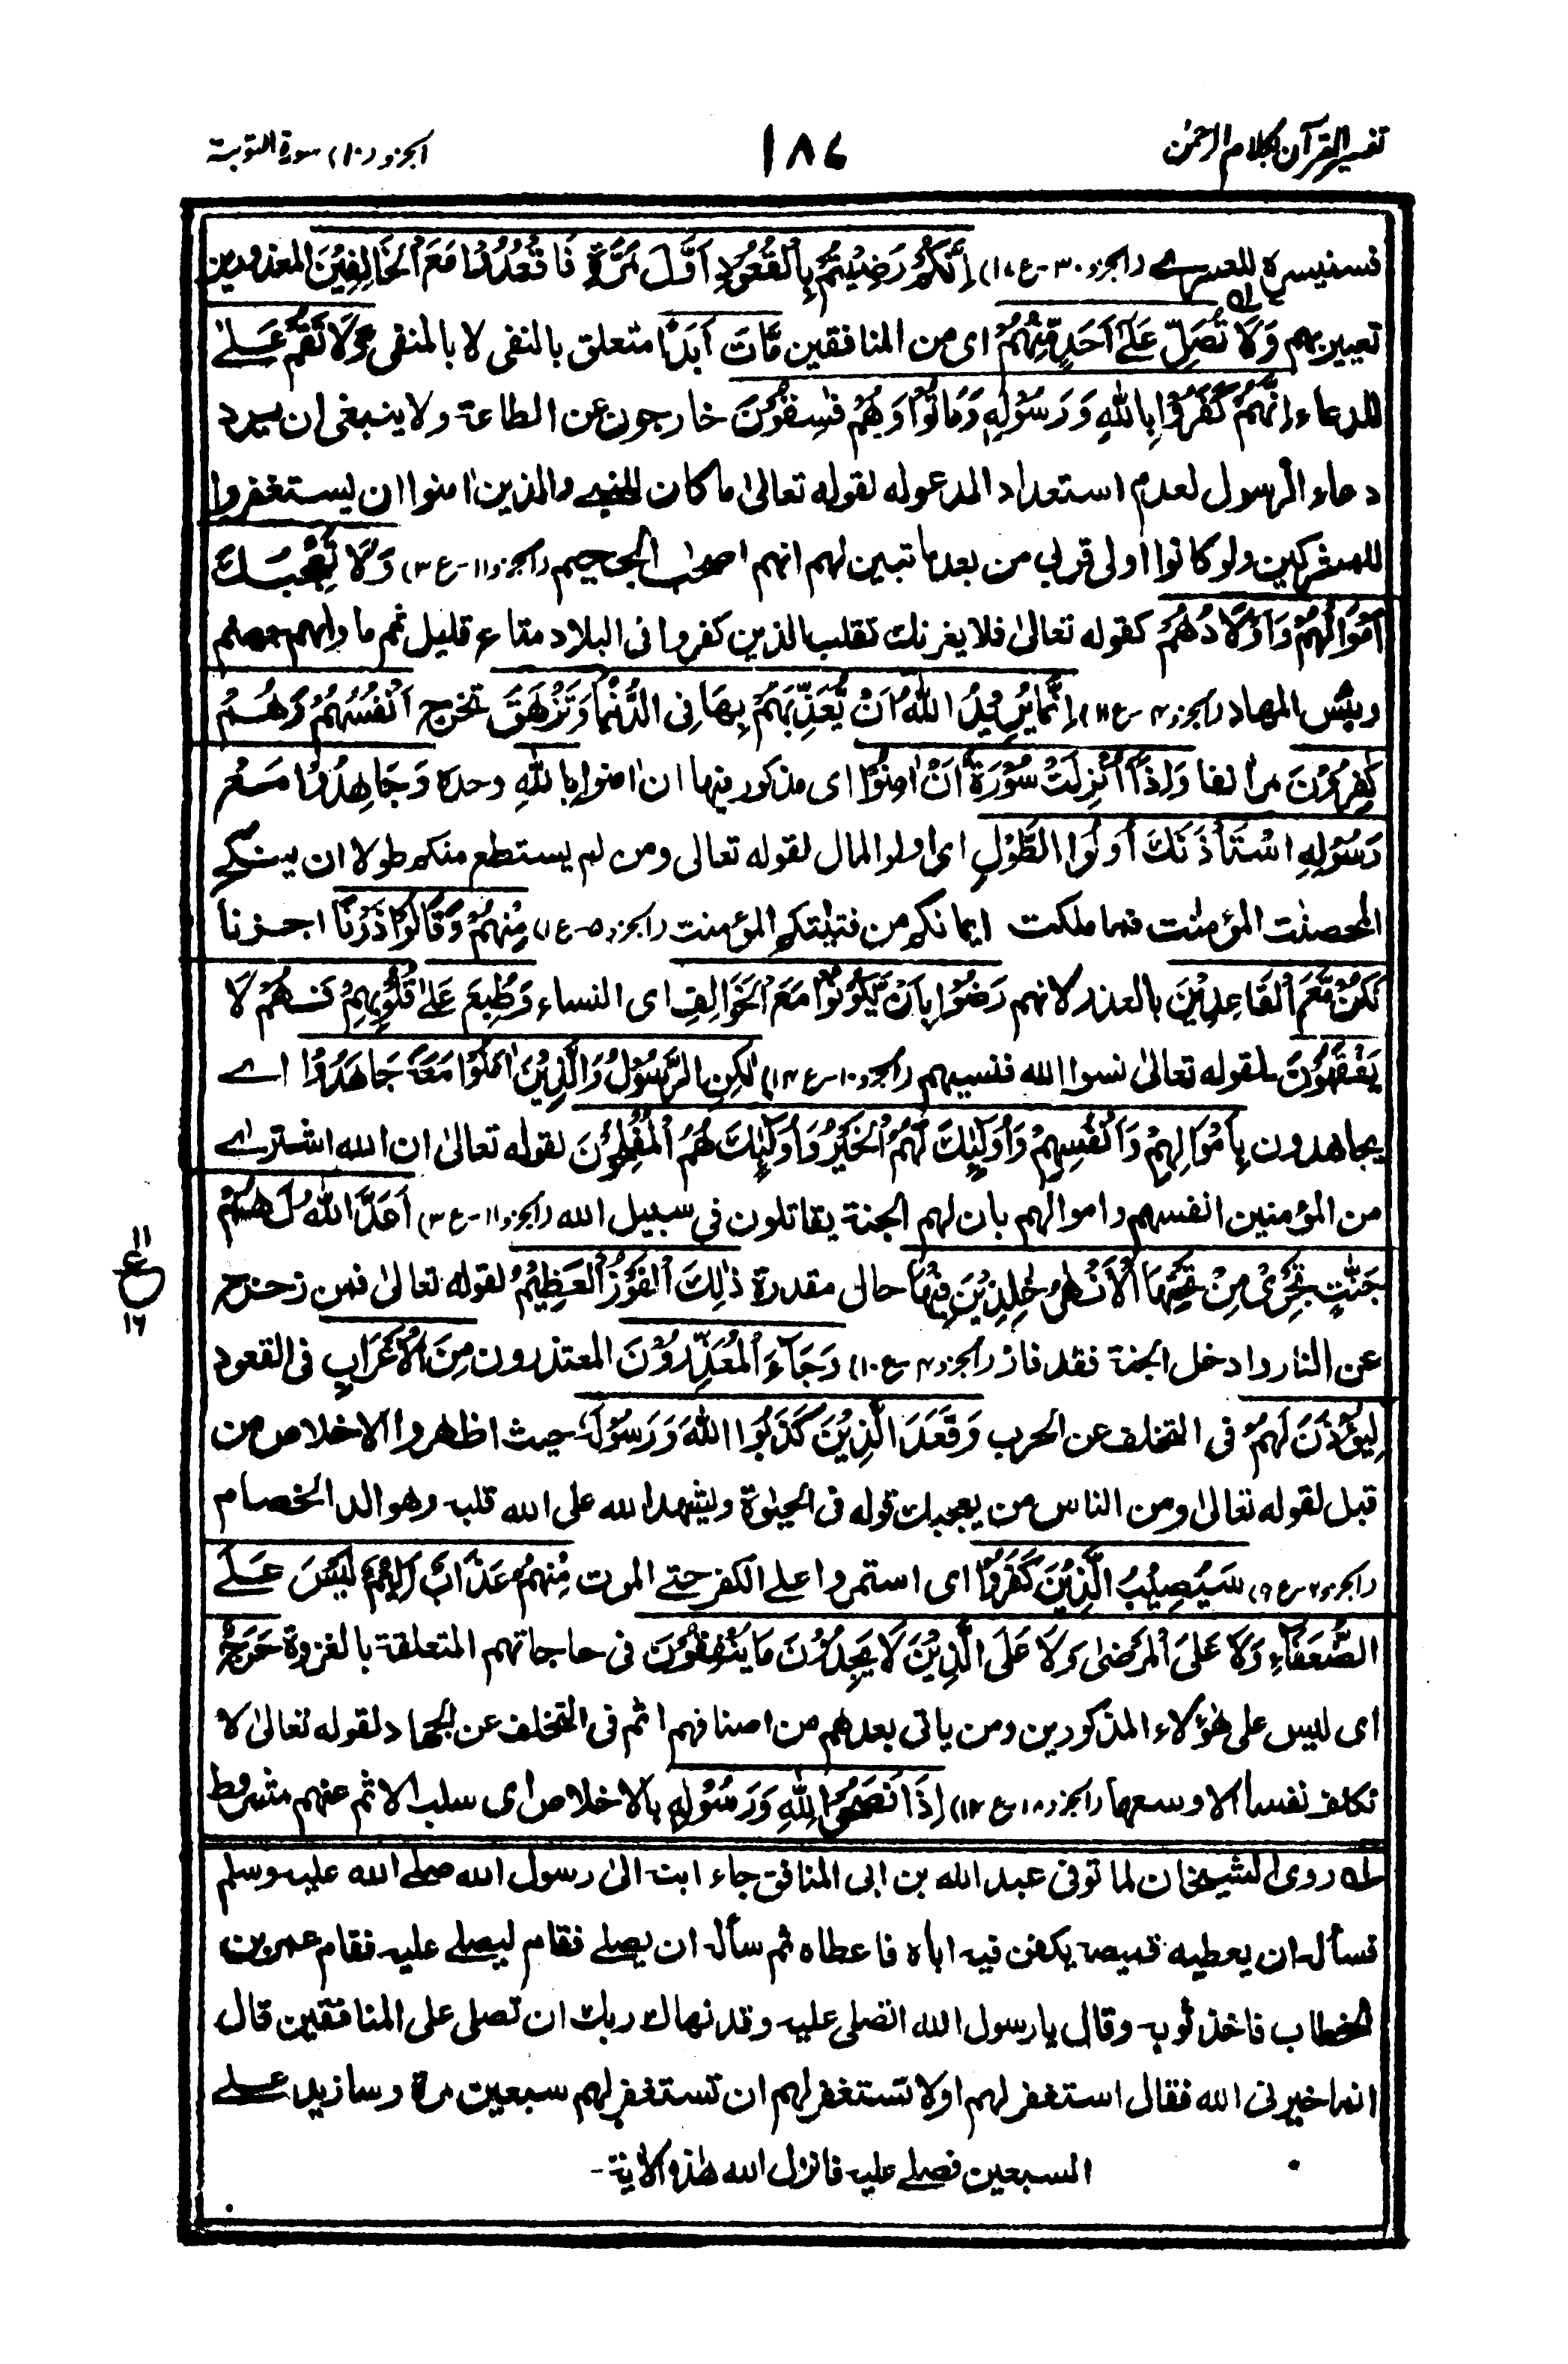 تفسير القرآن بكلام الرحمن
١٨٧
الجزو (١٠) سورة التوبة
فسنيسره للعسرى (الجزو ٣٠-ع ١٧) إِنَّكُمْ رَضِيْتُمْ بِالْقُعُوْدِ اَوَّلَ مَرَّةٍ فَاقْعُدُوْا مَعَ الْخَالِفِيْنَ المعذورين
تعييربهم وَلَا تُصَلِّ عَلٰٓى اَحَدٍ مِّنْهُمْ اى من المنافقين مَّاتَ اَبَدًا متعلق بالنفى لا بالمنفى وَّلَا تَقُمْ عَلٰى
للدعاء اِنَّهُمْ كَفَرُوْا بِاللّٰهِ وَرَسُوْلِهٖ وَمَاتُوْا وَهُمْ فٰسِقُوْنَ خارجون عن الطاعة ولا ينبغى ان يرد
دعاء الرسول لعدم استعداد المدعوله لقوله تعالىٰ ما كان للنبى والذين اٰمنوا ان يستغفروا
للمشركين ولو كانوا اولى قربى من بعد ما تبين لهم انهم اصحٰب الجحيم (الجزو ١١-ع ٣) وَلَا تُعْجِبْكَ
اَمْوَالُهُمْ وَاَوْلَادُهُمْ كقوله تعالىٰ فلا يغرنك تقلب الذين كفروا فى البلاد متاع قليل ثم ماواهم جهنم
وبئس المهاد (الجزو ٤-ع ١١) اِنَّمَا يُرِيْدُ اللّٰهُ اَنْ يُّعَذِّبَهُمْ بِهَا فِى الدُّنْيَا وَتَزْهَقَ تخرج اَنْفُسُهُمْ وَهُمْ
كٰفِرُوْنَ مر انفا وَاِذَآ اُنْزِلَتْ سُوْرَةٌ اَنْ اٰمِنُوْا اى مذكور فيها ان اٰمنوا بِاللّٰهِ وحده وَجَاهِدُوْا مَعَ
رَسُوْلِهِ اسْتَأْذَنَكَ اُولُوا الطَّوْلِ اى اولوا المال لقوله تعالى ومن لم يستطع منكم طولا ان ينكح
المحصنٰت المؤمنٰت فمما ملكت ايمانكم من فتيٰتكم المؤمنت (الجزو ٥-ع ١) مِنْهُمْ وَقَالُوْا ذَرْنَا اجزنا
نَكُنْ مَّعَ الْقَاعِدِيْنَ بالعذر لانهم رَضُوْا بِاَنْ يَّكُوْنُوْا مَعَ الْخَوَالِفِ اى النساء وَطُبِعَ عَلٰى قُلُوْبِهِمْ فَهُمْ لَا
يَفْقَهُوْنَ لقوله تعالىٰ نسوا الله فنسيهم (الجزو ١٠-ع ١٤) لٰكِنِ الرَّسُوْلُ وَالَّذِيْنَ اٰمَنُوْا مَعَهٗ جَاهَدُوْا اى
يجاهدون بِاَمْوَالِهِمْ وَاَنْفُسِهِمْ وَاُولٰٓئِكَ لَهُمُ الْخَيْرٰتُ وَاُولٰٓئِكَ هُمُ الْمُفْلِحُوْنَ لقوله تعالىٰ ان الله اشترى
من المؤمنين انفسهم واموالهم بان لهم الجنة يقاتلون فى سبيل الله (الجزو ١١-ع ٣) اَعَدَّ اللّٰهُ لَهُمْ
جَنّٰتٍ تَجْرِىْ مِنْ تَحْتِهَا الْاَنْهٰرُ خٰلِدِيْنَ فِيْهَا حال مقدرة ذٰلِكَ الْفَوْزُ الْعَظِيْمُ لقوله تعالىٰ فمن زحزح
عن النار وادخل الجنة فقد فاز (الجزو ٤-ع ١٠) وَجَآءَ الْمُعَذِّرُوْنَ المعتذرون مِنَ الْاَعْرَابِ فى القعود
لِيُؤْذَنَ لَهُمْ فى التخلف عن الحرب وَقَعَدَ الَّذِيْنَ كَذَبُوا اللّٰهَ وَرَسُوْلَهٗ حيث اظهروا الاخلاص من
قبل لقوله تعالىٰ ومن الناس من يعجبك قوله فى الحيٰوة ويشهد الله على الله قلبه وهو الد الخصام
(الجزو ٢-ع ٩) سَيُصِيْبُ الَّذِيْنَ كَفَرُوْا اى استمروا على الكفر حتى الموت مِنْهُمْ عَذَابٌ اَلِيْمٌ لَيْسَ عَلَى
الضُّعَفَآءِ وَلَا عَلَى الْمَرْضٰى وَلَا عَلَى الَّذِيْنَ لَا يَجِدُوْنَ مَا يُنْفِقُوْنَ فى حاجاتهم المتعلقة بالغزوة حَرَجٌ
اى ليس على هٰؤلاء المذكورين ومن ياتى بعدهم من اصنافهم اثم فى التخلف عن الجهاد لقوله تعالىٰ لا
نكلف نفسا الا وسعها (الجزو ١٨-ع ١٢) اِذَا نَصَحُوْا لِلّٰهِ وَرَسُوْلِهٖ بالاخلاص اى سلب الاثم عنهم مشروط
١١
ع
١٦
له روى الشيخان لما توفى عبد الله بن ابى المنافق جاء ابنه الىٰ رسول الله صلى الله عليه وسلم
فسأله ان يعطيه قميصه يكفن فيه اباه فاعطاه ثم سأله ان يصلى فقام ليصلى عليه فقام عمر بن
الخطاب فاخذ ثوبه وقال يا رسول الله اتصلى عليه وقد نهاك ربك ان تصلى على المنافقين قال
انما خيرنى الله فقال استغفر لهم اولا تستغفر لهم ان تستغفر لهم سبعين مرة وسازيد على
السبعين فصلى عليه فانزل الله هٰذه الاية-